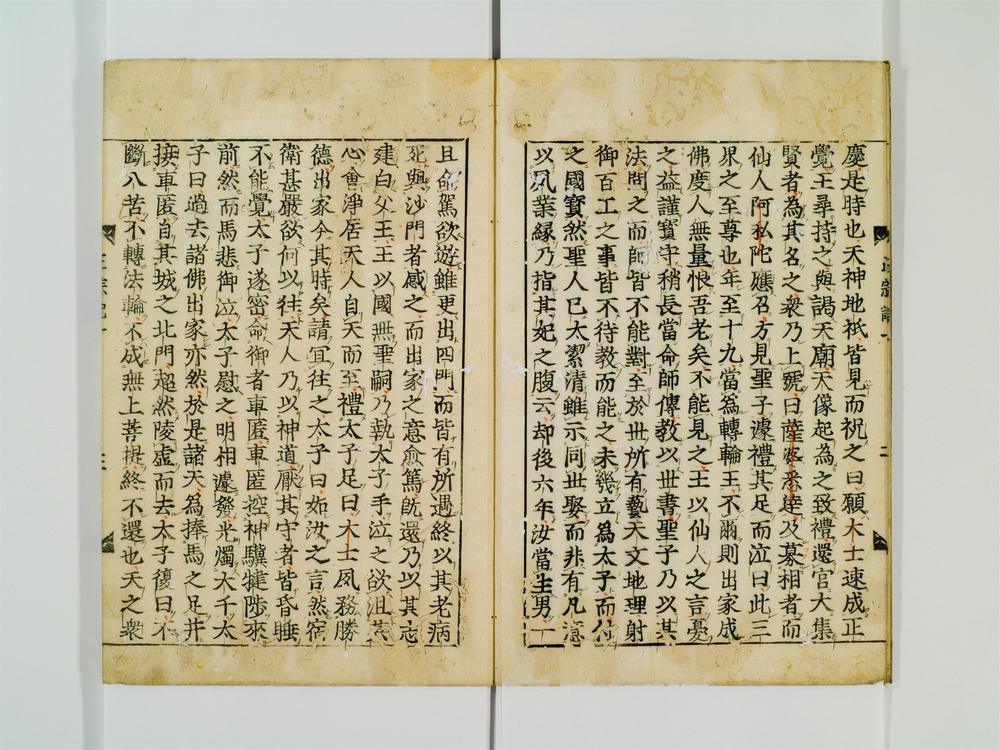 慶是時也天神地祇皆見而祝之曰願大士速成正
覺王尋持之與謁天廟天像起為之致禮還宮大集
賢者為其名之衆乃上號曰薩婆悉達及募相者而
仙人阿私陀應召方見聖子遽禮其足而泣曰此三
界之至尊也年至十九當為轉輪王不爾則出家成
佛度人無量恨吾老矣不能見之王以仙人之言憂
之益謹寶守稍長當命師傳教以世書聖子乃以其
法問之而師皆不能對至於世所有藝天文地理射
御百工之事皆不待教而能之未幾立為太子而付
之國寶然聖人已大潔清雖示同世娶而非有凡意
以夙業緣乃指其妃之腹云却後六年汝當生男一
且命駕欲遊雖更出四門而皆有所遇終以其老病
死與沙門者感之而出家之意愈篤既還乃以其志
建白父王王以國無聖嗣乃執太子手泣之欲沮其
心會淨居天人自天而至禮太子足曰大士夙務勝
德出家今其時矣請宜往之太子曰如汝之言然宿
衛甚嚴欲何以往天人乃以神道厭其守者皆昏睡
不能覺太子遂密命御者車匿車匿控神驥犍陟來
前然而馬悲御泣太子慰之明相遽發光燭大千太
子曰過去諸佛出家亦然於是諸天為捧馬之足并
接車匿自其城之北門超然陵虛而去太子復曰不
斷八苦不轉法輪不成無上菩提終不還也天之衆
正宗記一
二